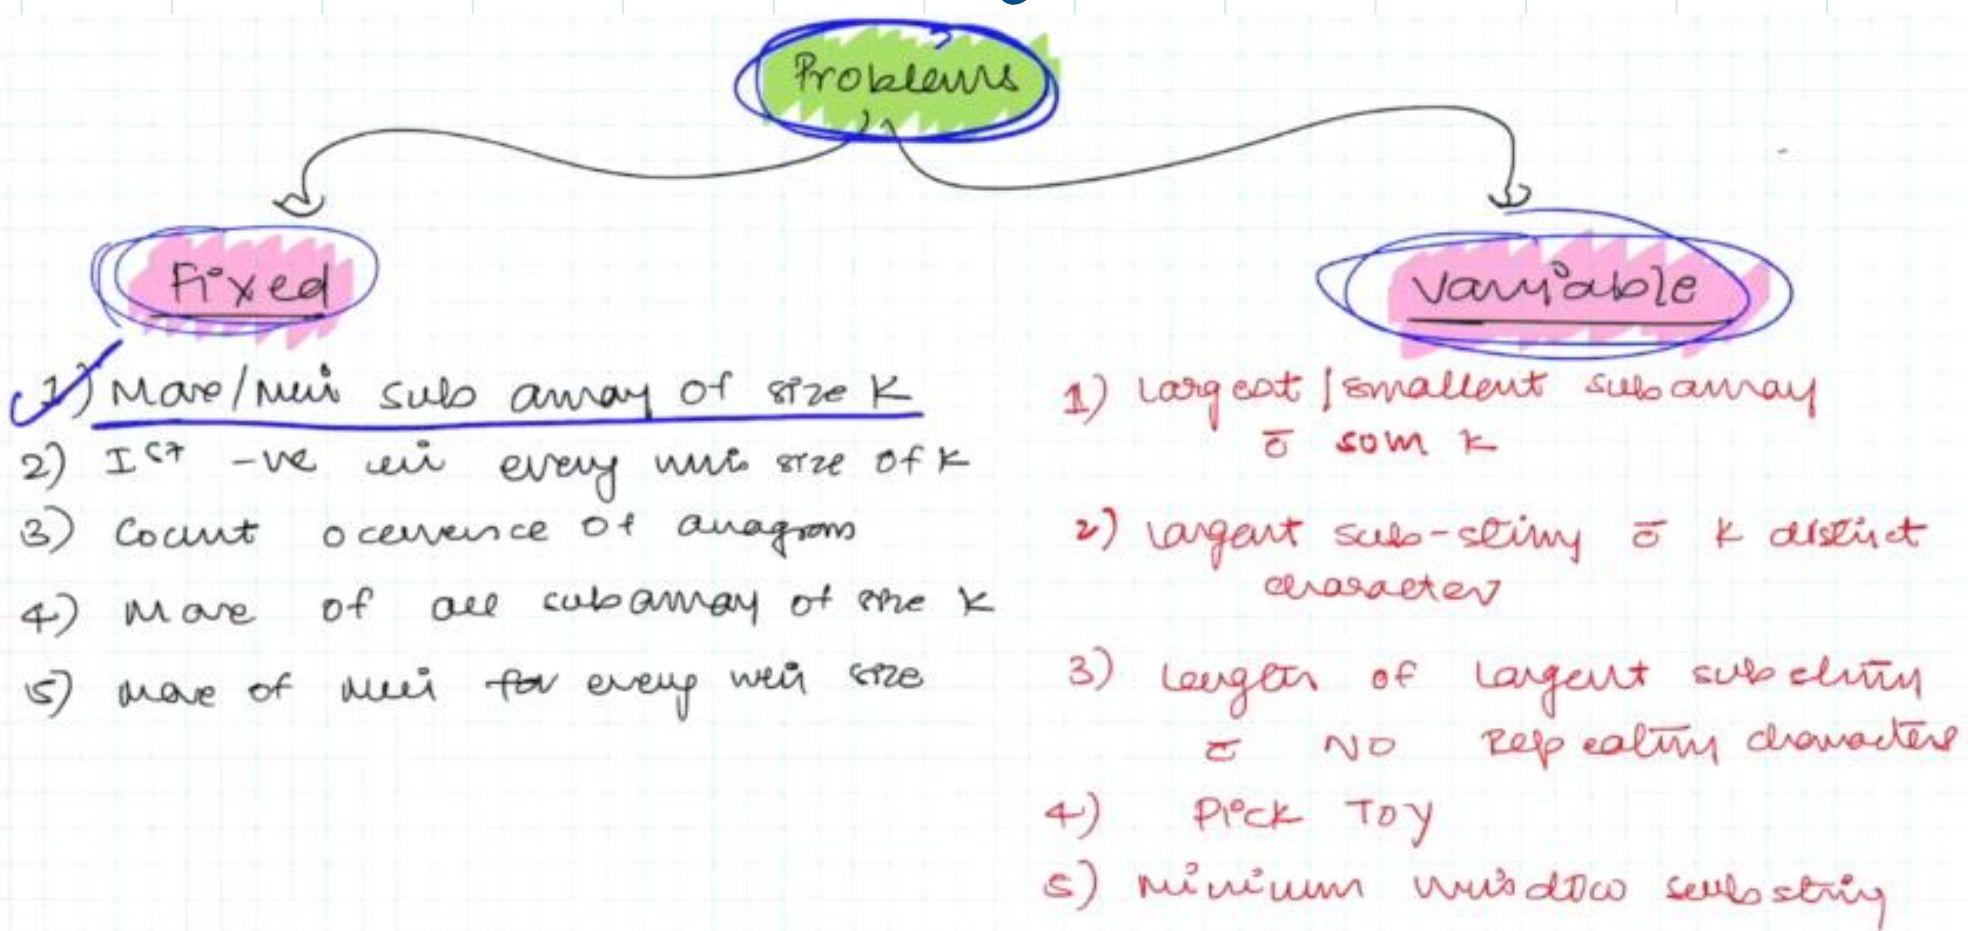 Problems
Fixed
Variable
1) Max/Min sub array of size K
2) Ist -ve in every win size of K
3) Count occurence of anagram
4) Max of all subarray of size K
5) Max of Min for every win size
1) Largest / smallest subarray
c̄ sum K
2) Largest sub-string c̄ K distinct
character
3) Length of largest substring
c̄ NO Repeating characters
4) Pick TOY
5) Minimum window substring